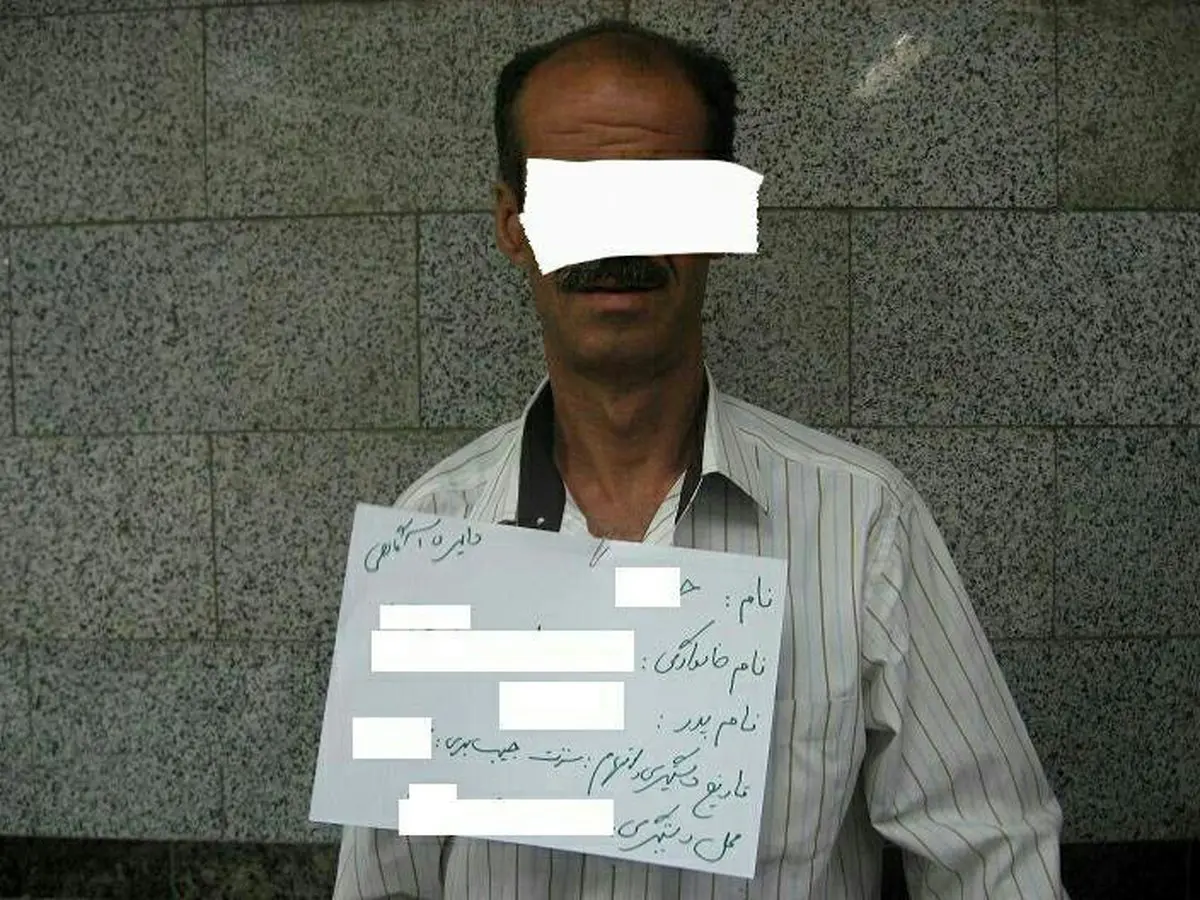 دایره ۱ آگاهی
نام : ح
نام خانوادگی :
نام پدر :
تاریخ دستگیری و اتهام : سرقت جیب بری :
محل دستگیری :